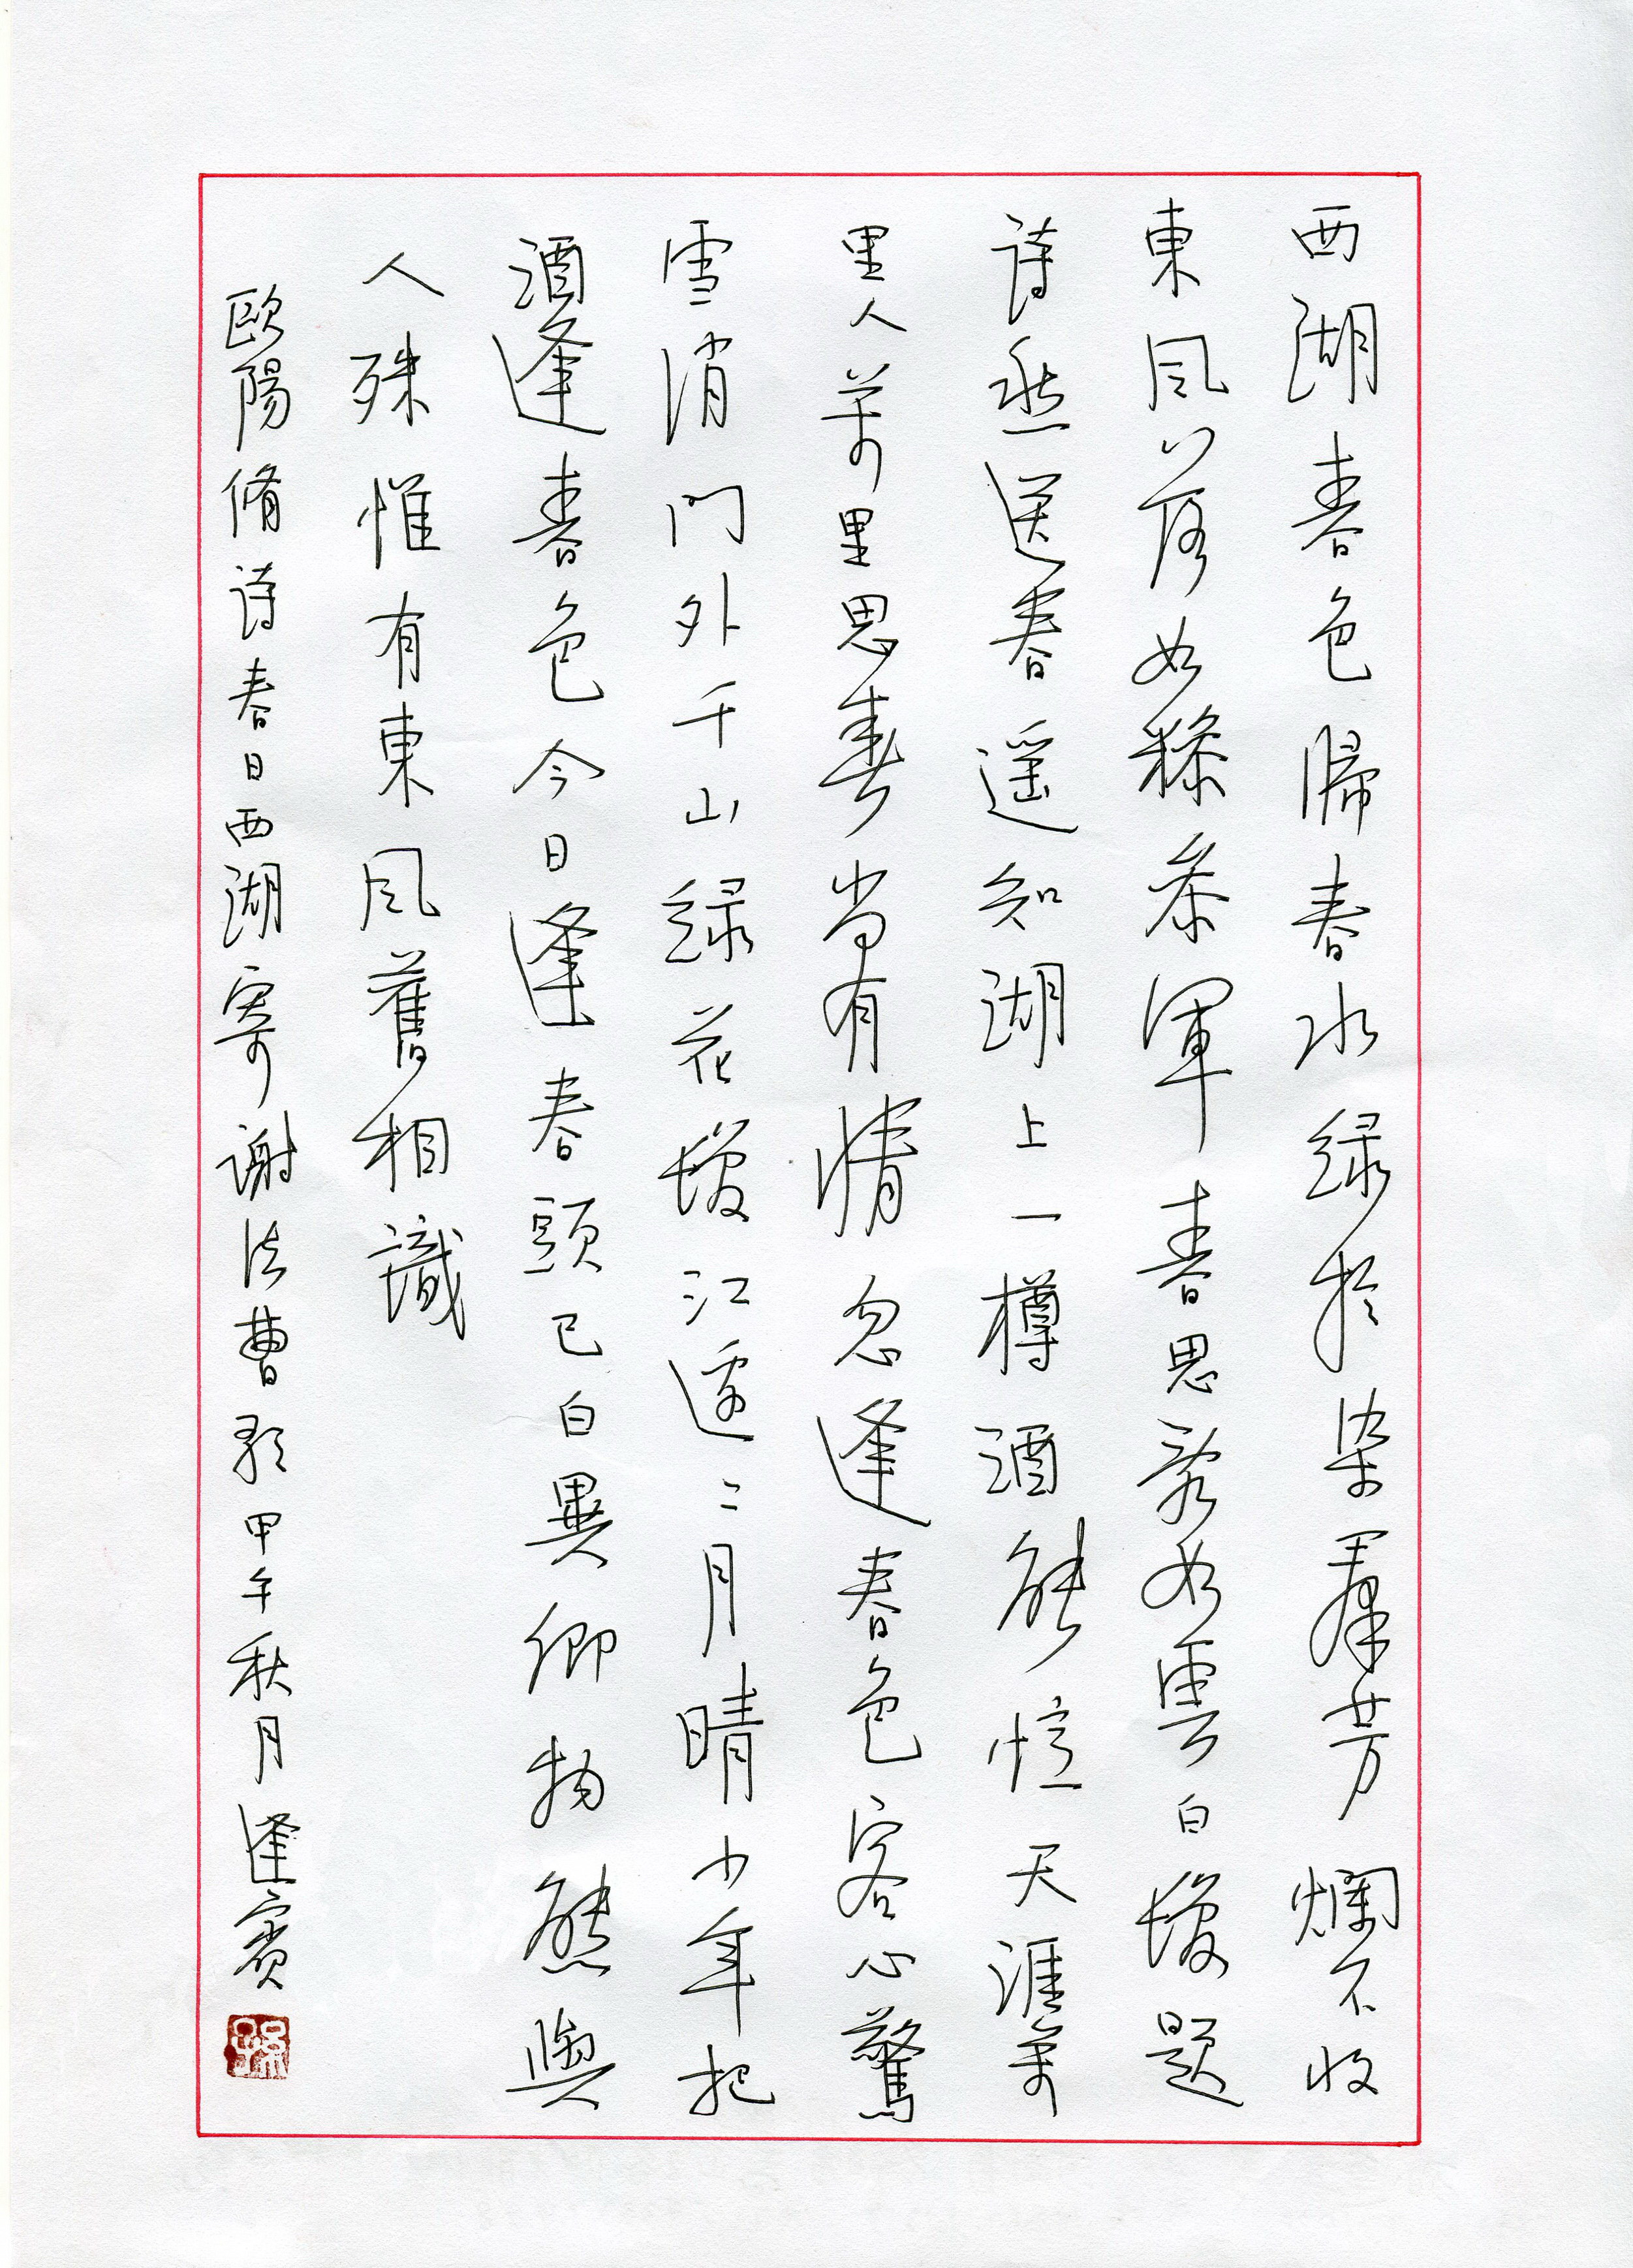 西湖春色歸春水緑於染羣芳爛不收
東風落如糝叅軍春思亂如雲白髮題
詩愁送春遥知湖上一樽酒能憶天涯萬
里人萬里思春尚有情忽逢春色客心驚
雪消門外千山緑花發江邊二月晴少年把
酒逢春色今日逢春頭已白異鄉物態與
人殊惟有東風舊相識
歐陽脩詩春日西湖寄謝法曹歌甲午秋月逢賓